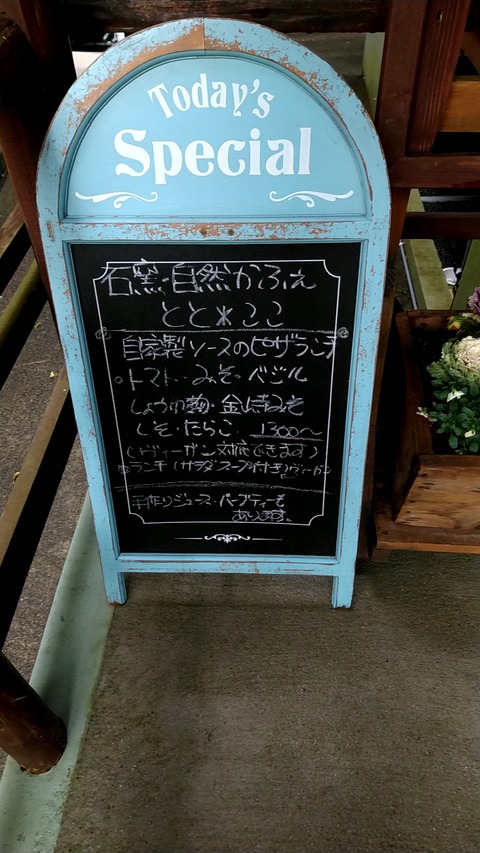 Today's
Special
石窯・自然かふぇ
とと*ここ
自家製ソースのピザランチ
トマト・みそ・バジル
しょうゆ麹・金山寺みそ
しそ・たらこ 1300〜
(ヴィーガン対応できます)
ランチ(サラダスープ付き)ヴィーガン
手作りジュース・ハーブティーも
あります。